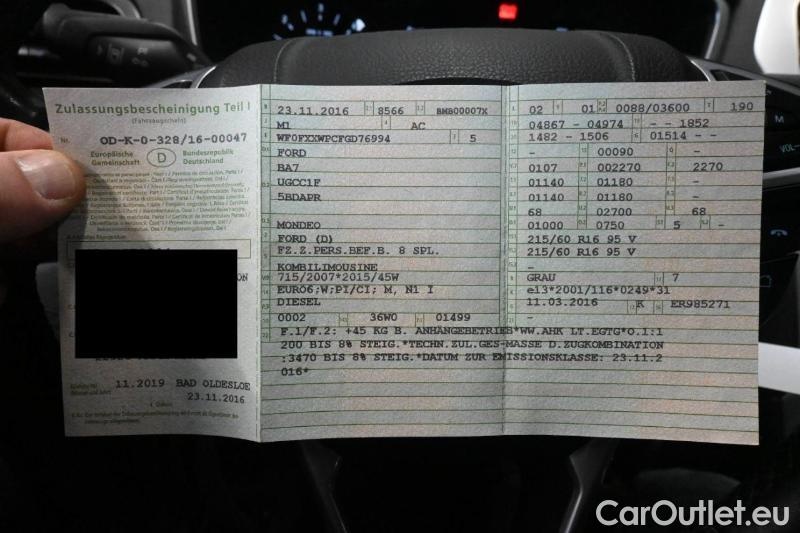 Zulassungsbescheinigung Teil I
(Fahrzeugschein)
Nr. OD-K-0-328/16-00047
Europäische Gemeinschaft D Bundesrepublik Deutschland
11.2019 BAD OLDESLOE
23.11.2016
23.11.2016 8566 BMB00007X
M1 AC
WF0FXXWPCFGD76994 5
FORD
BA7
UGCC1F
5BDAPR
MONDEO
FORD (D)
FZ.Z.PERS.BEF.B. 8 SPL.
KOMBILIMOUSINE
715/2007*2015/45W
EURO6;W;PI/CI; M, N1 I
DIESEL
0002 36W0 01499
02 01 0088/03600 190
04867 - 04974 - - 1852
1482 - 1506 01514 - -
- 00090 -
0107 002270 2270
01140 01180 -
01140 01180 -
68 02700 68
01000 0750 5 -
215/60 R16 95 V
215/60 R16 95 V
-
GRAU 7
e13*2001/116*0249*31
11.03.2016 K ER985271
F.1/F.2: +45 KG B. ANHÄNGEBETRIEB*WW.AHK LT.EGTG*O.1:1
200 BIS 8% STEIG.*TECHN.ZUL.GES-MASSE D.ZUGKOMBINATION
:3470 BIS 8% STEIG.*DATUM ZUR EMISSIONSKLASSE: 23.11.2
016*
M
VOL-
CarOutlet.eu